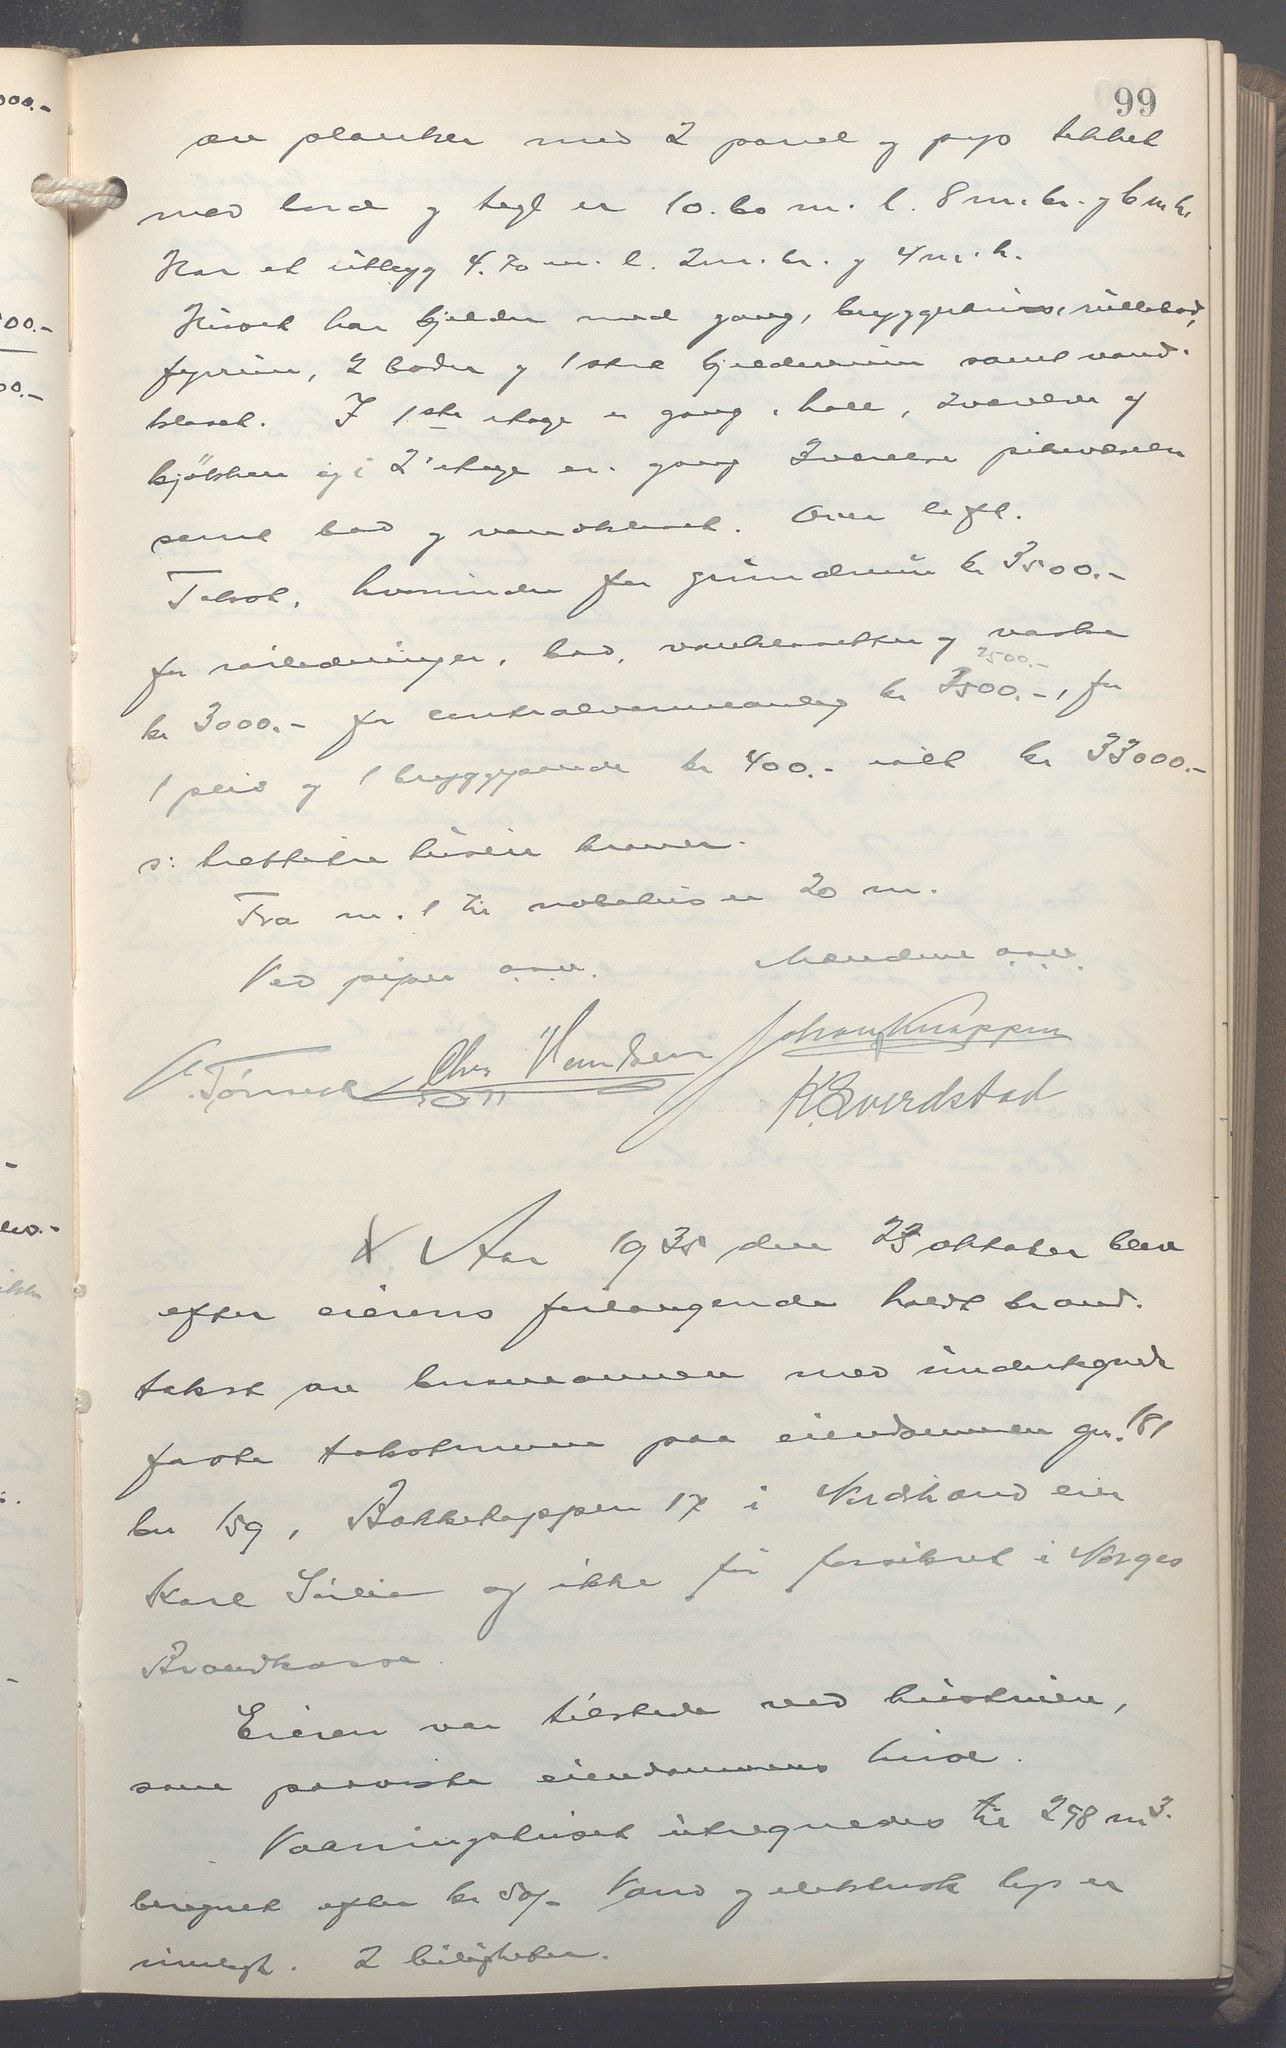 99
av planker med 2 panel og papp tekket
med bord og tegl er 10.60 m. l. 8 m. br. og 6 m h.
Har et utbygg 4.70 m. l. 2 m. br. og 4 m. h.
Huset har kjelder med gang, bryggerhus, rullebod,
fyrrum, 2 boder og 1 stort kjelderrum samt vand-
kloset. I 1ste etage er gang, hall, 2 værelser og
kjökken og i 2' etage er gang 3 værelser pikeværelse
samt bad og vandkloset. Over loft.
Takst, hvorunder for grundmur kr 3500.-
for rørledninger, bad, vanklosetter og vaske
2500.-
kr 3000.- for centralvarmeanlæg kr 3500.-, for
1 peis og 1 bryggepande kr 400.- ialt kr 33000.-
s: trettitre tusen kroner.
Fra nr. 1 til nabohus er 20 m.
Ved piper o.s.v. Mændene o.s.v.
Chr Knudsen Johan Knappen
K. Sverdstad
X Aar 1935 den 23 oktober blev
efter eierens forlangende holdt brand-
takst av lensmannen med undertegnede
faste takstmenn paa eiendommen gnr. 181
bn 159, Bakketoppen 17 i Nordstrand eier
Karl Sørlie og ikke før forsikret i Norges
Brandkasse.
Eieren var tilstede ved hustruen,
som paaviste eiendommens huse.
Vaaningshuset utregnedes til 298 m3.
beregnet efter kr 50/- Vand og elektrisk lys er
innlagt. 2 leiligheter.